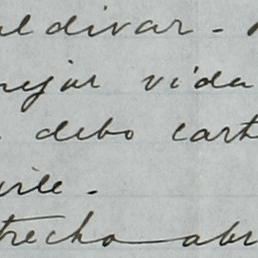 aldivar. -
mejor vida
debo cart
ile. -
trecho abr